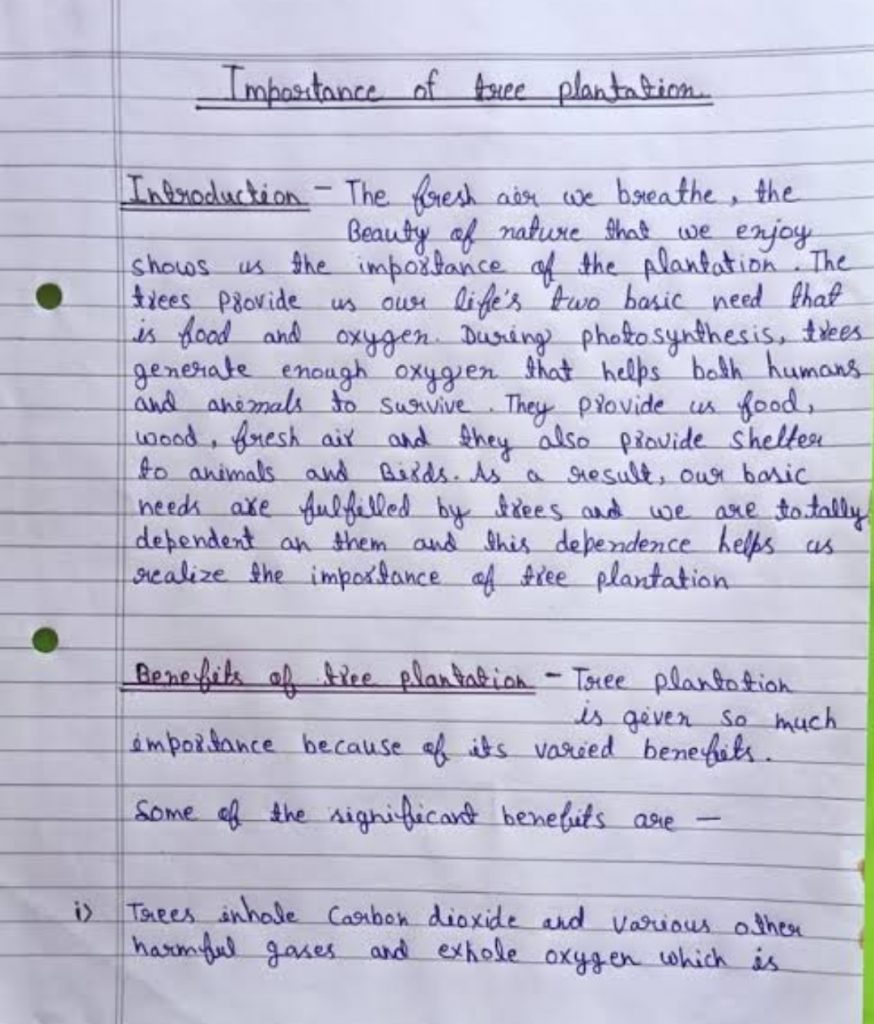 Importance of tree plantation
Introduction - The fresh air we breathe, the
Beauty of nature that we enjoy
shows us the importance of the plantation. The
trees provide us our life's two basic need that
is food and oxygen. During photosynthesis, trees
generate enough oxygen that helps both humans
and animals to survive. They provide us food,
wood, fresh air and they also provide shelter
to animals and Birds. As a result, our basic
needs are fulfilled by trees and we are totally
dependent an them and this dependence helps us
realize the importance of tree plantation
Benefits of tree plantation - Tree plantation
is given so much
importance because of its varied benefits.
Some of the significant benefits are -
i) Trees inhale Carbon dioxide and various other
harmful gases and exhale oxygen which is